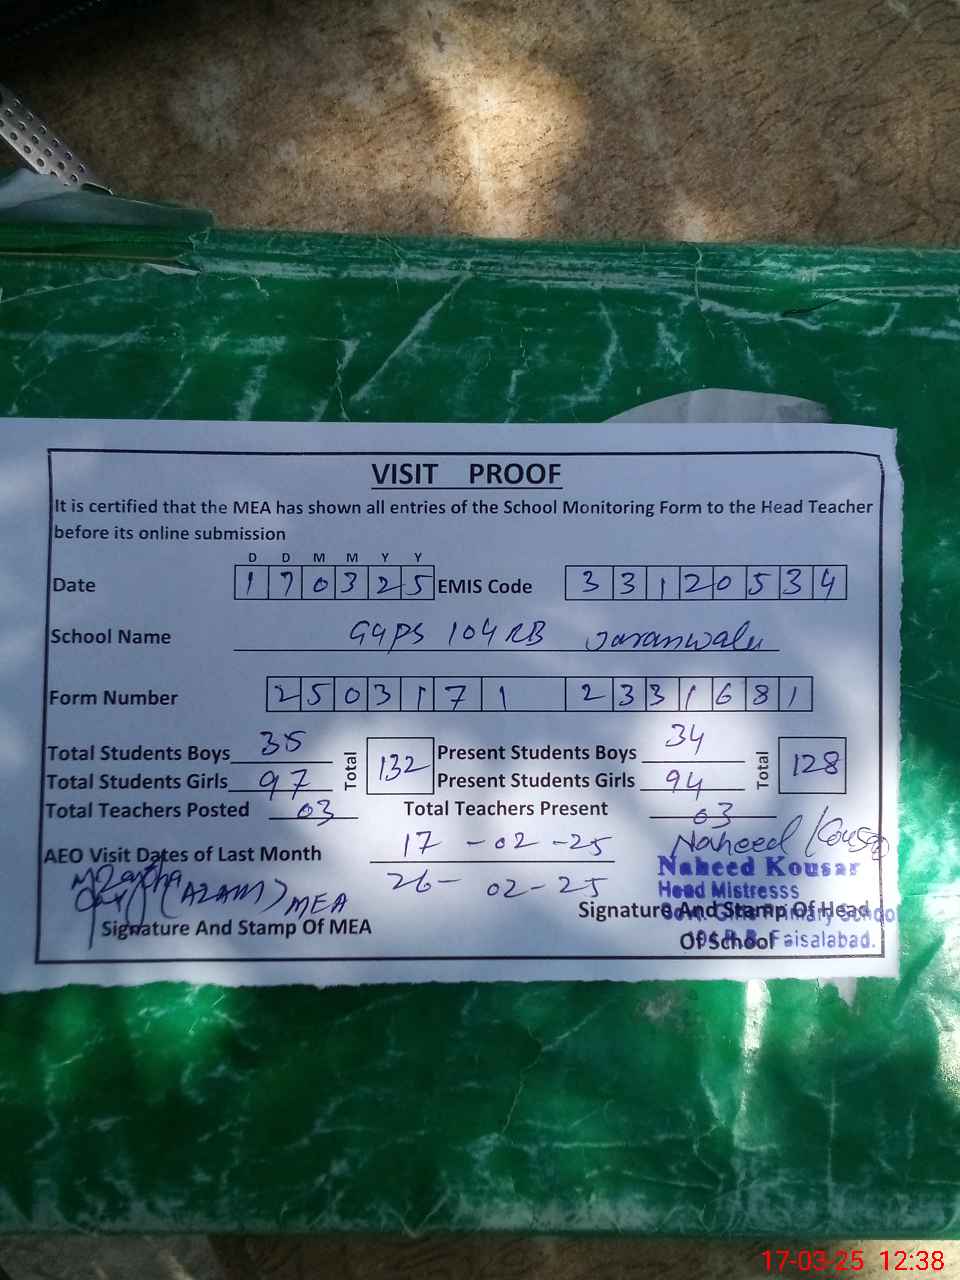 VISIT PROOF
It is certified that the MEA has shown all entries of the School Monitoring Form to the Head Teacher
before its online submission
D D M M Y Y
Date 1 7 0 3 2 5 EMIS Code 3 3 1 2 0 5 3 4
School Name GGPS 104 RB Jaranwala
Form Number 2 5 0 3 1 7 1 2 3 3 1 6 8 1
Total Students Boys 35 Total 132 Present Students Boys 34 Total 128
Total Students Girls 97 Present Students Girls 94
Total Teachers Posted 03 Total Teachers Present 03
AEO Visit Dates of Last Month 17-02-25 Naheed Kousar
26-02-25 Naheed Kousar
(AZAM) MEA Head Mistresss
Signature And Stamp Of MEA Signature And Stamp Of Head
Govt. Girls Primary School
Of School
104 R.B. Faisalabad.
17-03-25 12:38